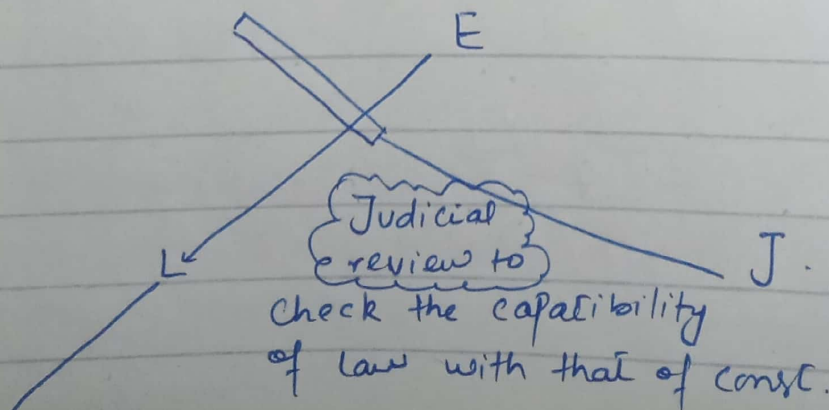 E
L
J.
Judicial
review to
check the capatibility
of law with that of const.